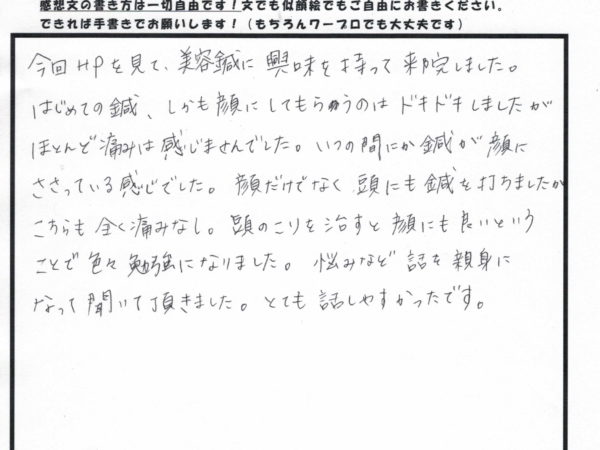 感想文の書き方は一切自由です！文でも似顔絵でもご自由にお書きください。
できれば手書きでお願いします！（もちろんワープロでも大丈夫です）
今回HPを見て、美容鍼に興味を持って来院しました。
はじめての鍼、しかも顔にしてもらうのはドキドキしましたが
ほとんど痛みは感じませんでした。いつの間にか鍼が顔に
ささっている感じでした。顔だけでなく頭にも鍼を打ちましたが
こちらも全く痛みなし。頭のこりを治すと顔にも良いという
ことで色々勉強になりました。悩みなど話を親身に
なって聞いて頂きました。とても話しやすかったです。